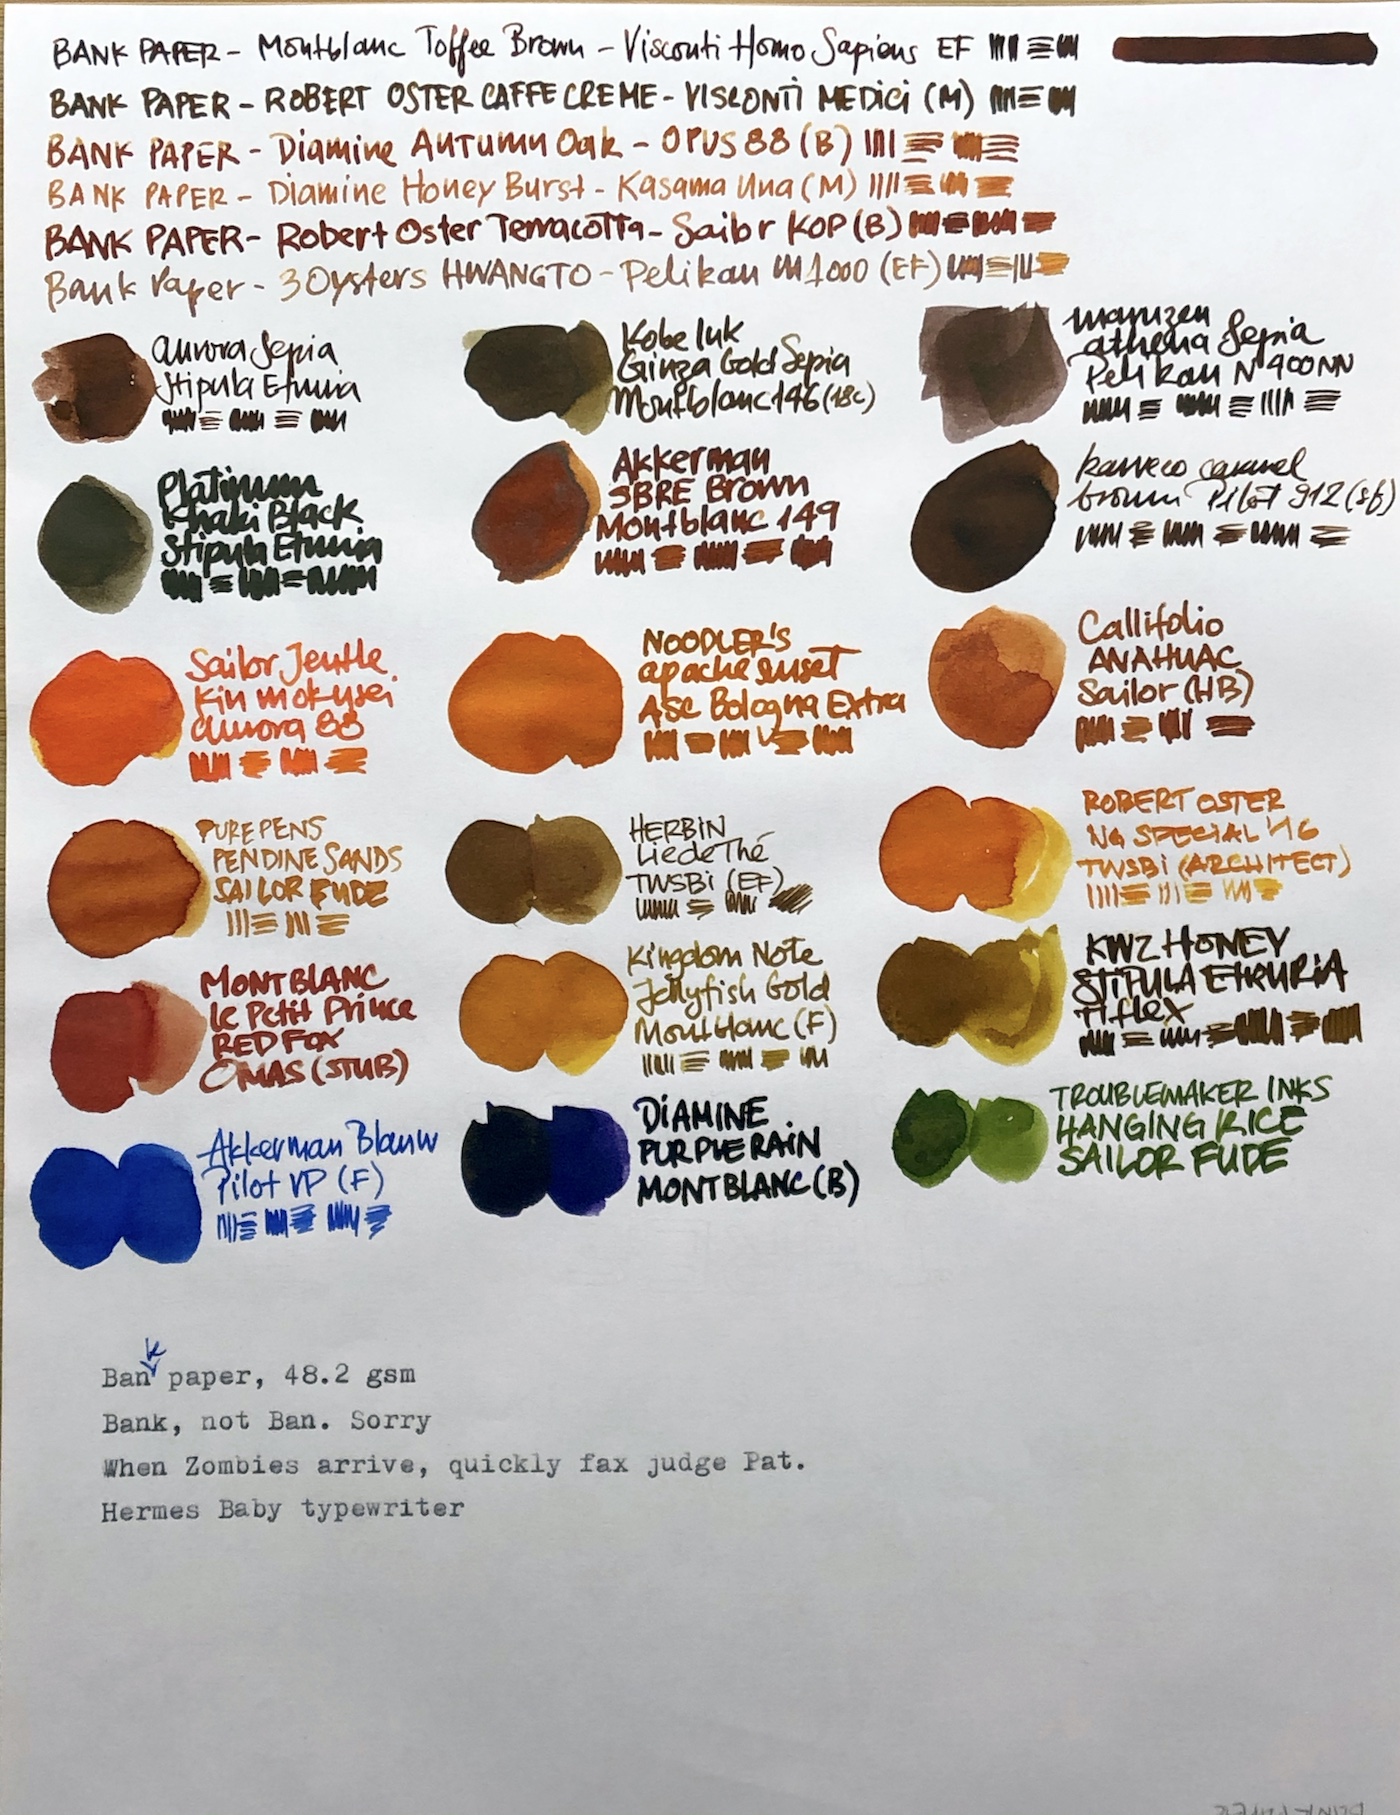 BANK PAPER - Montblanc Toffee Brown - Visconti Homo Sapiens EF
BANK PAPER - ROBERT OSTER CAFFE CREME - VISCONTI MEDICI (M)
BANK PAPER - Diamine AUTUMN Oak - OPUS 88 (B)
BANK PAPER - Diamine Honey Burst - Kasama Una (M)
BANK PAPER - Robert Oster Terracotta - Sailor KOP (B)
Bank Paper - 3 Oysters HWANGTO - Pelikan M1000 (EF)
aurora Sepia
Stipula Etruria
Kobe Ink
Ginza Gold Sepia
Montblanc 146 (18c)
maruzen
athena Sepia
Pelikan N 400NN
Platinum
Khaki Black
Stipula Etruria
Akkerman
SBRE Brown
Montblanc 149
kaweco caramel
brown Pilot 912 (sf)
Sailor Jentle
Kin mokusei
aurora 88
NOODLER'S
apache sunset
ASC Bologna Extra
Callifolio
ANAHUAC
Sailor (HB)
PUREPENS
PENDINE SANDS
SAILOR FUDE
HERBIN
Lie de Thé
TWSBI (EF)
ROBERT OSTER
NG SPECIAL '16
TWSBI (ARCHITECT)
MONTBLANC
le Petit Prince
RED FOX
OMAS (STUB)
Kingdom Note
Jellyfish Gold
Montblanc (F)
KWZ HONEY
STIPULA ETRURIA
Tiflex
Akkerman Blauw
Pilot VP (F)
DIAMINE
PURPLE RAIN
MONTBLANC (B)
TROUBLEMAKER INKS
HANGING RICE
SAILOR FUDE
k
Ban paper, 48.2 gsm
Bank, not Ban. Sorry
When Zombies arrive, quickly fax judge Pat.
Hermes Baby typewriter